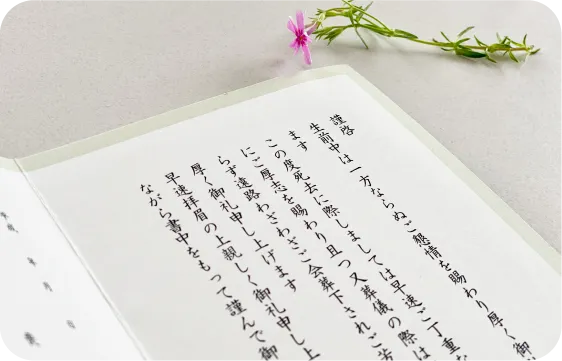 謹啓
生前中は一方ならぬご懇情を賜わり厚く御
ます
この度死去に際しましては早速ご丁重
にご厚志を賜わり且つ又葬儀の際は
らず遠路わざわざご会葬下されご芳
厚く御礼申し上げます
早速拝眉の上親しく御礼申し上
ながら書中をもって謹んで御
年 月 日